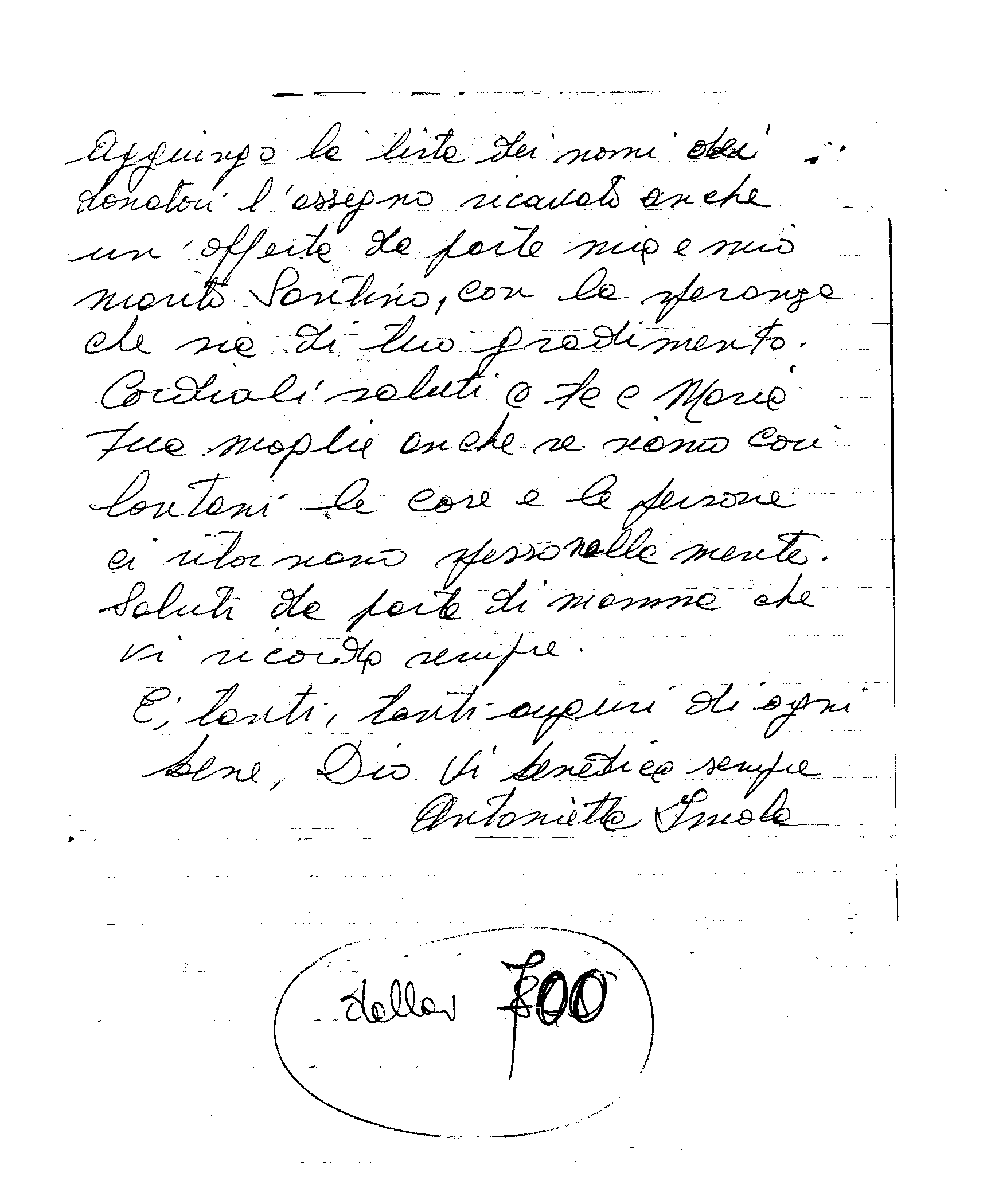 Aggiungo la lista dei nomi dei
donatori l'assegno ricavato anche
un'offerta da parte mia e mio
marito Santino, con la speranza
che sia di tuo gradimento.
Cordiali saluti a te e Maria
tua moglie anche se siamo così
lontani le cose e le persone
ci ritornano spesso nella mente.
Saluti da parte di mamma che
vi ricorda sempre.
E, tanti, tanti auguri di ogni
bene, Dio Vi benedica sempre
Antonietta
dollar 700